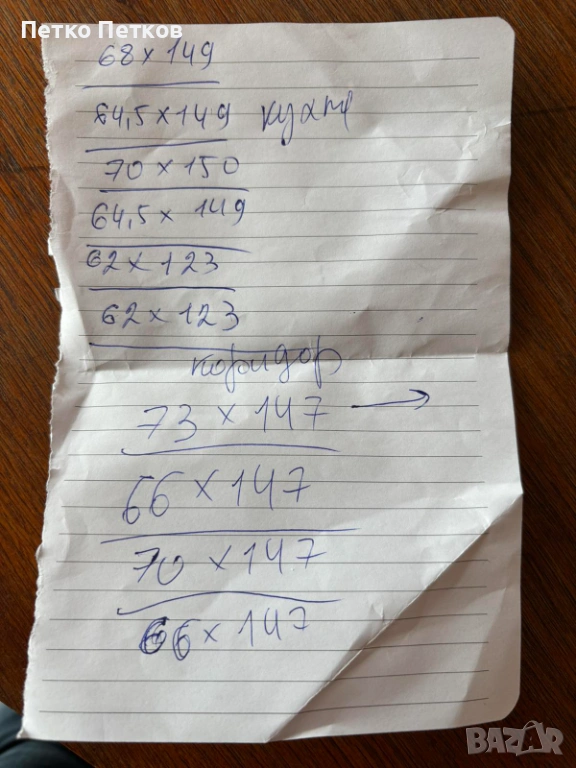 Петко Петков
68 x 149
64,5 x 149 кухня
70 x 150
64,5 x 149
62 x 123
62 x 123
коридор
73 x 147 →
66 x 147
70 x 147
66 x 147
BAZAR